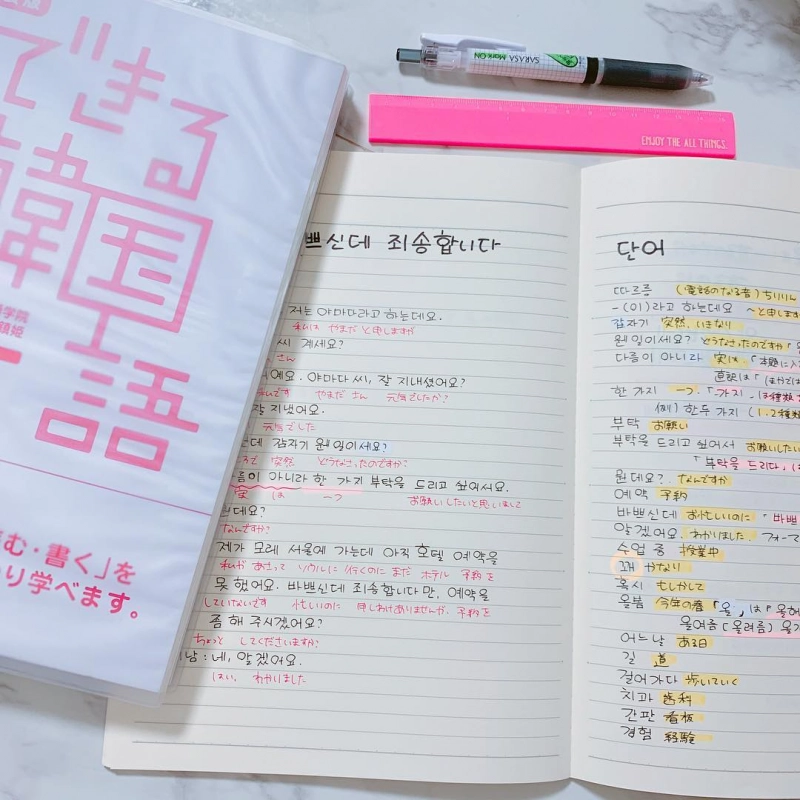 できる
韓国
語
学院
む・書く」を
り学べます。
SARASA Mark-ON
ENJOY THE ALL THINGS.
쁘신데 죄송합니다
저는 야마다라고 하는데요.
私は やまだ と申しますが
씨 계세요?
さん
예요. 야마다 씨, 잘 지내셨어요?
私です やまだ さん 元気でしたか?
잘 지냈어요.
元気でした
데 갑자기 웬일이세요?
突然 どうなさったのですか?
름이 아니라 한 가지 부탁을 드리고 싶어서요.
実 は 一つ お願いしたいと思いまして
데요?
なんですか?
제가 모레 서울에 가는데 아직 호텔 예약을
私が あさって ソウルに 行くのに まだ ホテル 予約を
못 했어요. 바쁘신데 죄송합니다만, 예약을
していないです 忙しいのに 申しわけありませんが、予約を
좀 해 주시겠어요?
ちょっと してくださいますか?
남 : 네, 알겠어요.
はい、わかりました
단어
따르릉 (電話のなる音) ちりりん
-(이)라고 하는데요 ~と申しますが
갑자기 突然、いきなり
웬일이세요? どうなさったのですか
다름이 아니라 実は 「本題に入
直訳は「ほかでは
한 가지 一つ 「가지」は種類
例) 한두 가지 (1、2種類
부탁 お願い
부탁을 드리고 싶어서 お願いしたい
「부탁을 드리다」は
뭔데요? なんですか
예약 予約
바쁘신데 お忙しいのに 「바쁘
알겠어요. わかりました。
수업 중 授業中
꽤 かなり
혹시 もしかして
올봄 今年の春 「올」は「올해
올여름 (올려름)
어느 날 ある日
길 道
걸어가다 歩いていく
치과 歯科
간판 看板
경험 経験